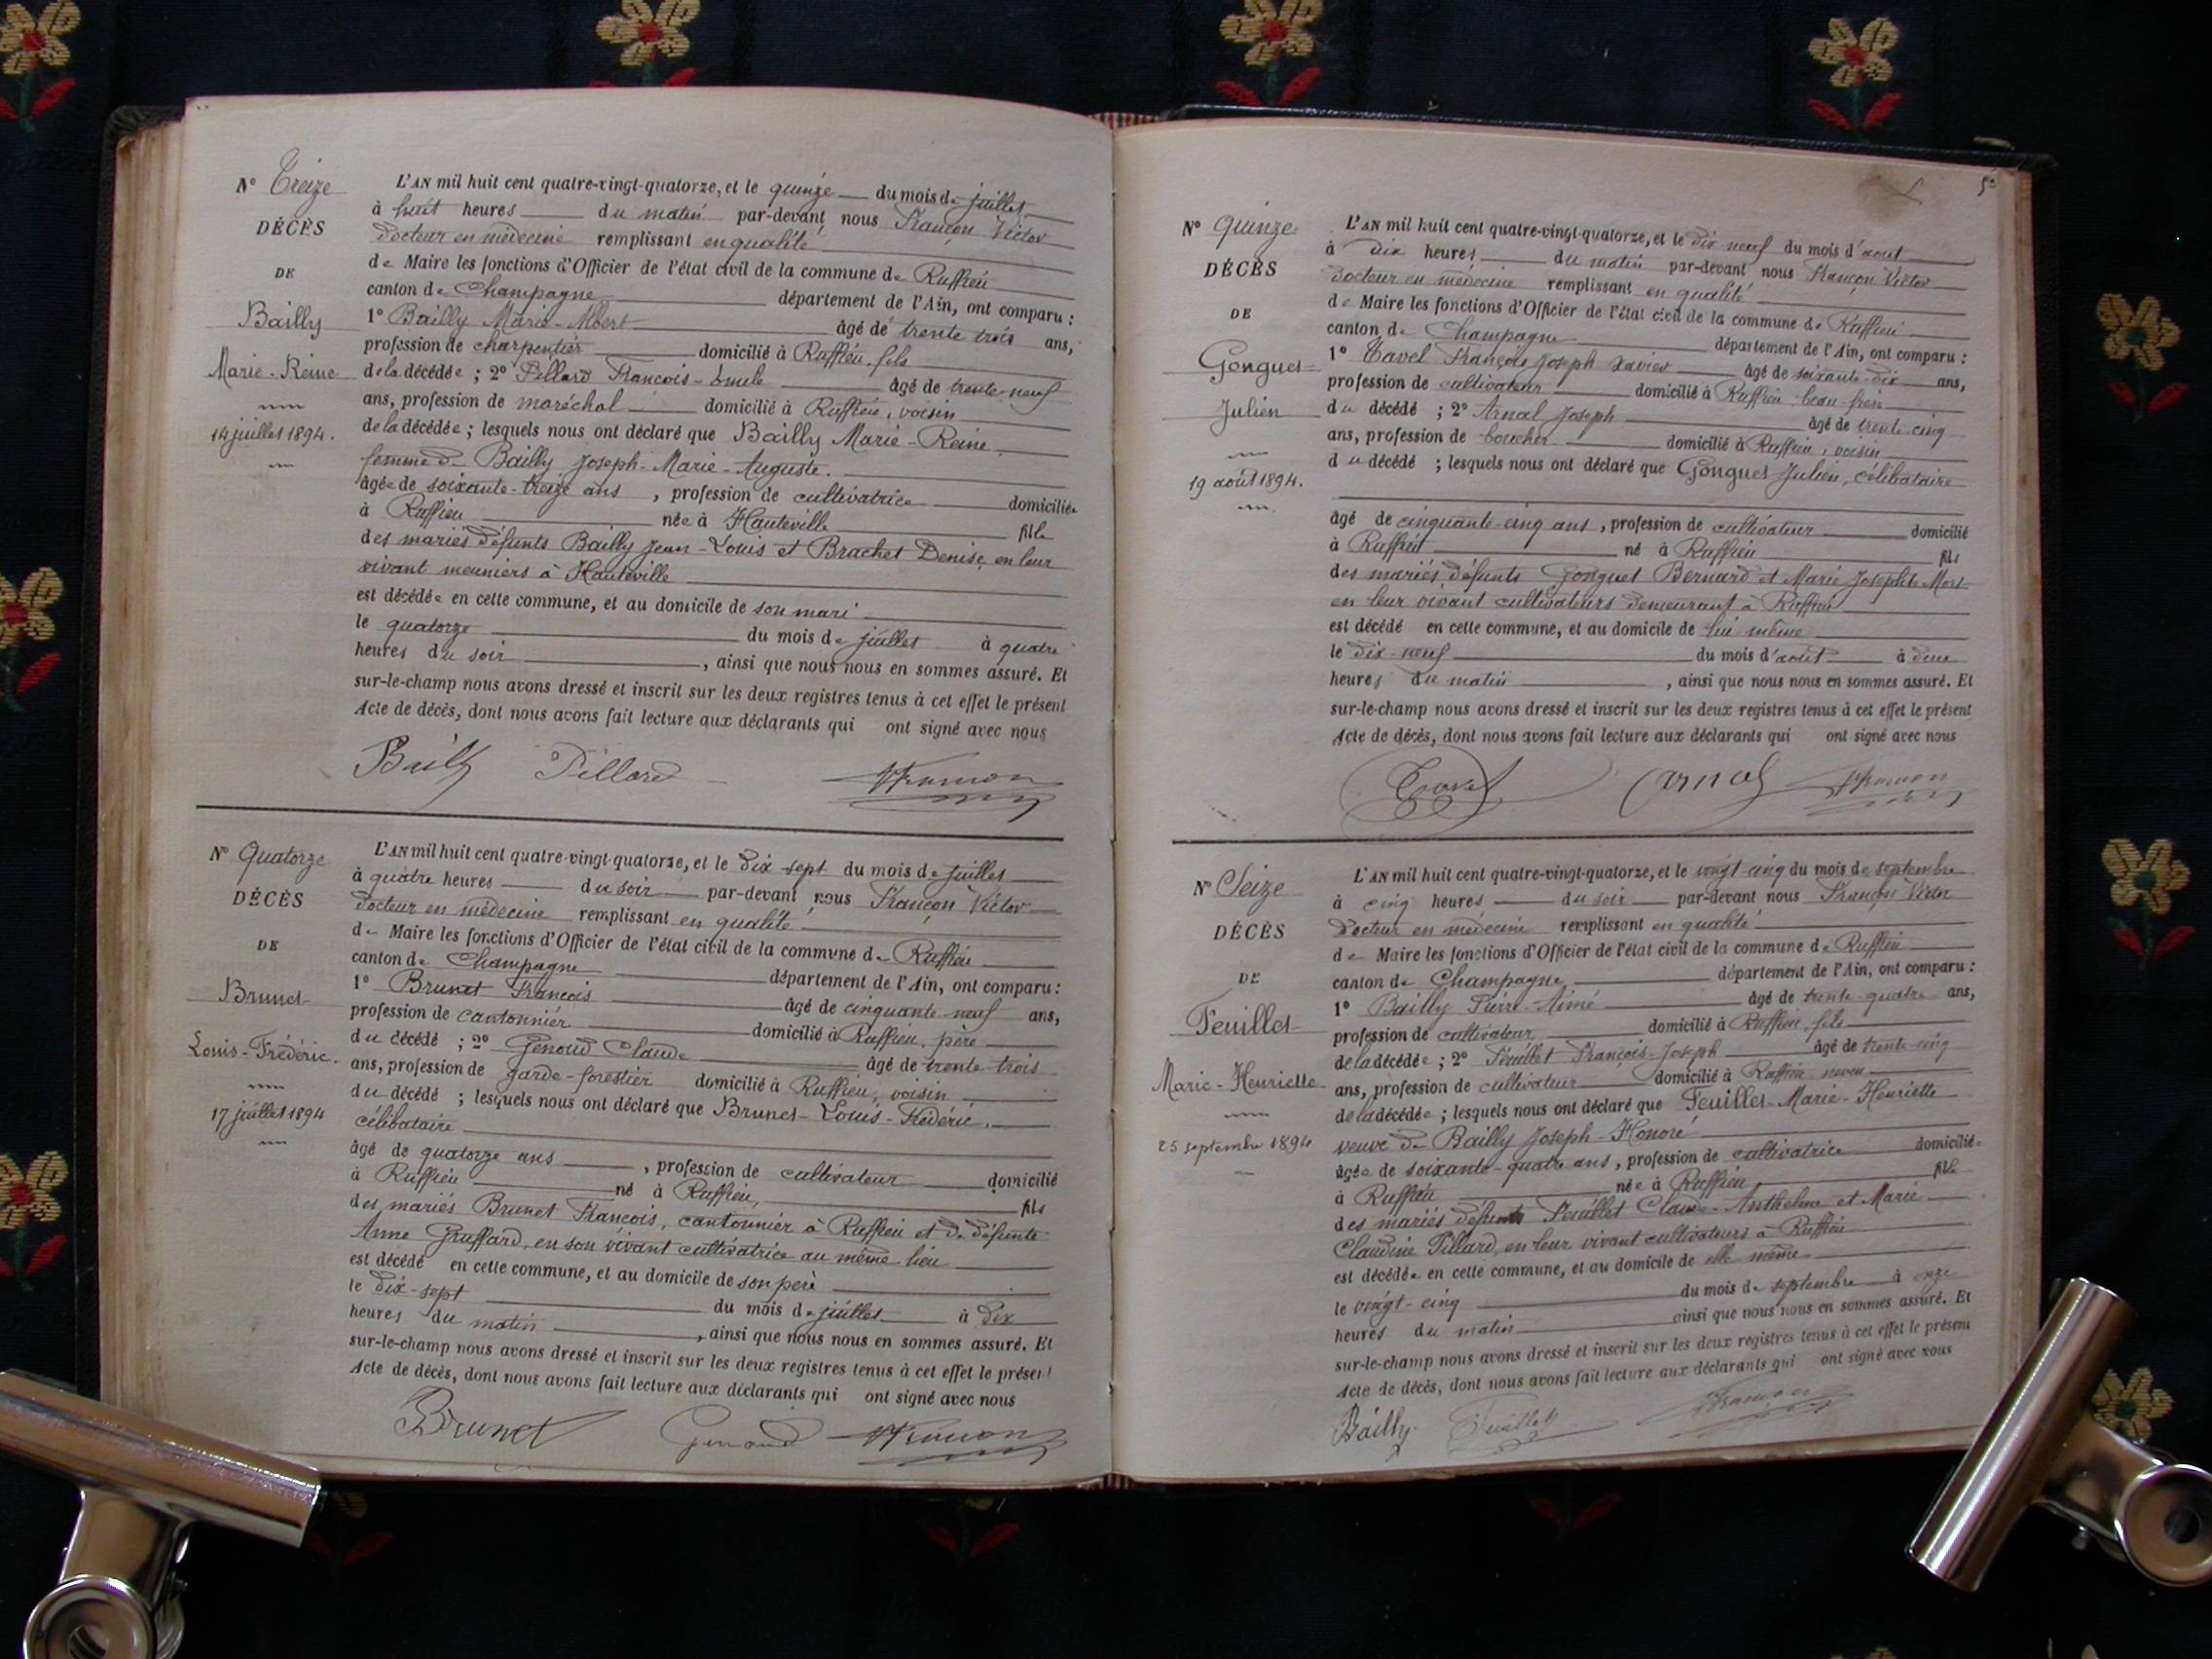 N° Treize
DÉCÈS
DE
Bailly
Marie-Reine
14 juillet 1894.
L'AN mil huit cent quatre-vingt-quatorze, et le quinze du mois de juillet
à huit heures du matin par-devant nous Françon Victor
docteur en médecine remplissant en qualité
de Maire les fonctions d'Officier de l'état civil de la commune de Ruffieu
canton de Champagne département de l'Ain, ont comparu :
1° Bailly Marie-Albert âgé de trente trois ans,
profession de charpentier domicilié à Ruffieu, fils
de la décédée ; 2° Pillard François-Emile âgé de trente-neuf
ans, profession de maréchal domicilié à Ruffieu, voisin
de la décédée ; lesquels nous ont déclaré que Bailly Marie-Reine,
femme de Bailly Joseph-Marie-Auguste.
âgée de soixante-treize ans , profession de cultivatrice domiciliée
à Ruffieu née à Hauteville fille
des mariés défunts Bailly Jean-Louis et Brachet Denise, en leur
vivant meuniers à Hauteville
est décédée en cette commune, et au domicile de son mari
le quatorze du mois de juillet à quatre
heures du soir , ainsi que nous nous en sommes assuré. Et
sur-le-champ nous avons dressé et inscrit sur les deux registres tenus à cet effet le présent
Acte de décès, dont nous avons fait lecture aux déclarants qui ont signé avec nous
Bailly Pillard VFrançon
N° Quatorze
DÉCÈS
DE
Brunet
Louis-Frédéric.
17 juillet 1894
L'AN mil huit cent quatre-vingt-quatorze, et le dix sept du mois de juillet
à quatre heures du soir par-devant nous Françon Victor
docteur en médecine remplissant en qualité
de Maire les fonctions d'Officier de l'état civil de la commune de Ruffieu
canton de Champagne département de l'Ain, ont comparu :
1° Brunet François âgé de cinquante-neuf ans,
profession de cantonnier domicilié à Ruffieu, père
du décédé ; 2° Genoud Claude âgé de trente-trois
ans, profession de garde-forestier domicilié à Ruffieu, voisin
du décédé ; lesquels nous ont déclaré que Brunet Louis-Frédéric,
célibataire
âgé de quatorze ans , profession de cultivateur domicilié
à Ruffieu né à Ruffieu, fils
des mariés Brunet François, cantonnier à Ruffieu et de défunte
Anne Gruffard, en son vivant cultivatrice au même lieu
est décédé en cette commune, et au domicile de son père
le dix-sept du mois de juillet à dix
heures du matin , ainsi que nous nous en sommes assuré. Et
sur-le-champ nous avons dressé et inscrit sur les deux registres tenus à cet effet le présent
Acte de décès, dont nous avons fait lecture aux déclarants qui ont signé avec nous
Brunet Genoud VFrançon
N° Quinze
DÉCÈS
DE
Gonguet
Julien
19 août 1894.
L'AN mil huit cent quatre-vingt-quatorze, et le dix neuf du mois d'août
à dix heures du matin par-devant nous Françon Victor
docteur en médecine remplissant en qualité
de Maire les fonctions d'Officier de l'état civil de la commune de Ruffieu
canton de Champagne département de l'Ain, ont comparu :
1° Tavel François Joseph Xavier âgé de soixante-dix ans,
profession de cultivateur domicilié à Ruffieu beau-frère
du décédé ; 2° Arnal Joseph âgé de trente-cinq
ans, profession de boucher domicilié à Ruffieu, voisin
du décédé ; lesquels nous ont déclaré que Gonguet Julien, célibataire
âgé de cinquante-cinq ans , profession de cultivateur domicilié
à Ruffieu né à Ruffieu fils
des mariés défunts Gonguet Bernard et Marie Josephte
en leur vivant cultivateurs demeurant à Ruffieu
est décédé en cette commune, et au domicile de lui même
le dix-neuf du mois d'août à deux
heures du matin , ainsi que nous nous en sommes assuré. Et
sur-le-champ nous avons dressé et inscrit sur les deux registres tenus à cet effet le présent
Acte de décès, dont nous avons fait lecture aux déclarants qui ont signé avec nous
Tavel Arnal VFrançon
N° Seize
DÉCÈS
DE
Feuillet
Marie-Henriette
25 septembre 1894
L'AN mil huit cent quatre-vingt-quatorze, et le vingt-cinq du mois de septembre
à cinq heures du soir par-devant nous Françon Victor
docteur en médecine remplissant en qualité
de Maire les fonctions d'Officier de l'état civil de la commune de Ruffieu
canton de Champagne département de l'Ain, ont comparu :
1° Bailly Pierre-Aimé âgé de trente-quatre ans,
profession de cultivateur domicilié à Ruffieu, fils
de la décédée ; 2° Feuillet François-Joseph âgé de trente-cinq
ans, profession de cultivateur domicilié à Ruffieu neveu
de la décédée ; lesquels nous ont déclaré que Feuillet Marie-Henriette
veuve de Bailly Joseph-Honoré
âgée de soixante-quatre ans , profession de cultivatrice domiciliée
à Ruffieu née à Ruffieu fille
des mariés défunts Feuillet Claude-Anthelme et Marie
Claudine Pillard, en leur vivant cultivateurs à Ruffieu
est décédée en cette commune, et au domicile de elle même
le vingt-cinq du mois de septembre à onze
heures du matin ainsi que nous nous en sommes assuré. Et
sur-le-champ nous avons dressé et inscrit sur les deux registres tenus à cet effet le présent
Acte de décès, dont nous avons fait lecture aux déclarants qui ont signé avec nous
Bailly Feuillet VFrançon